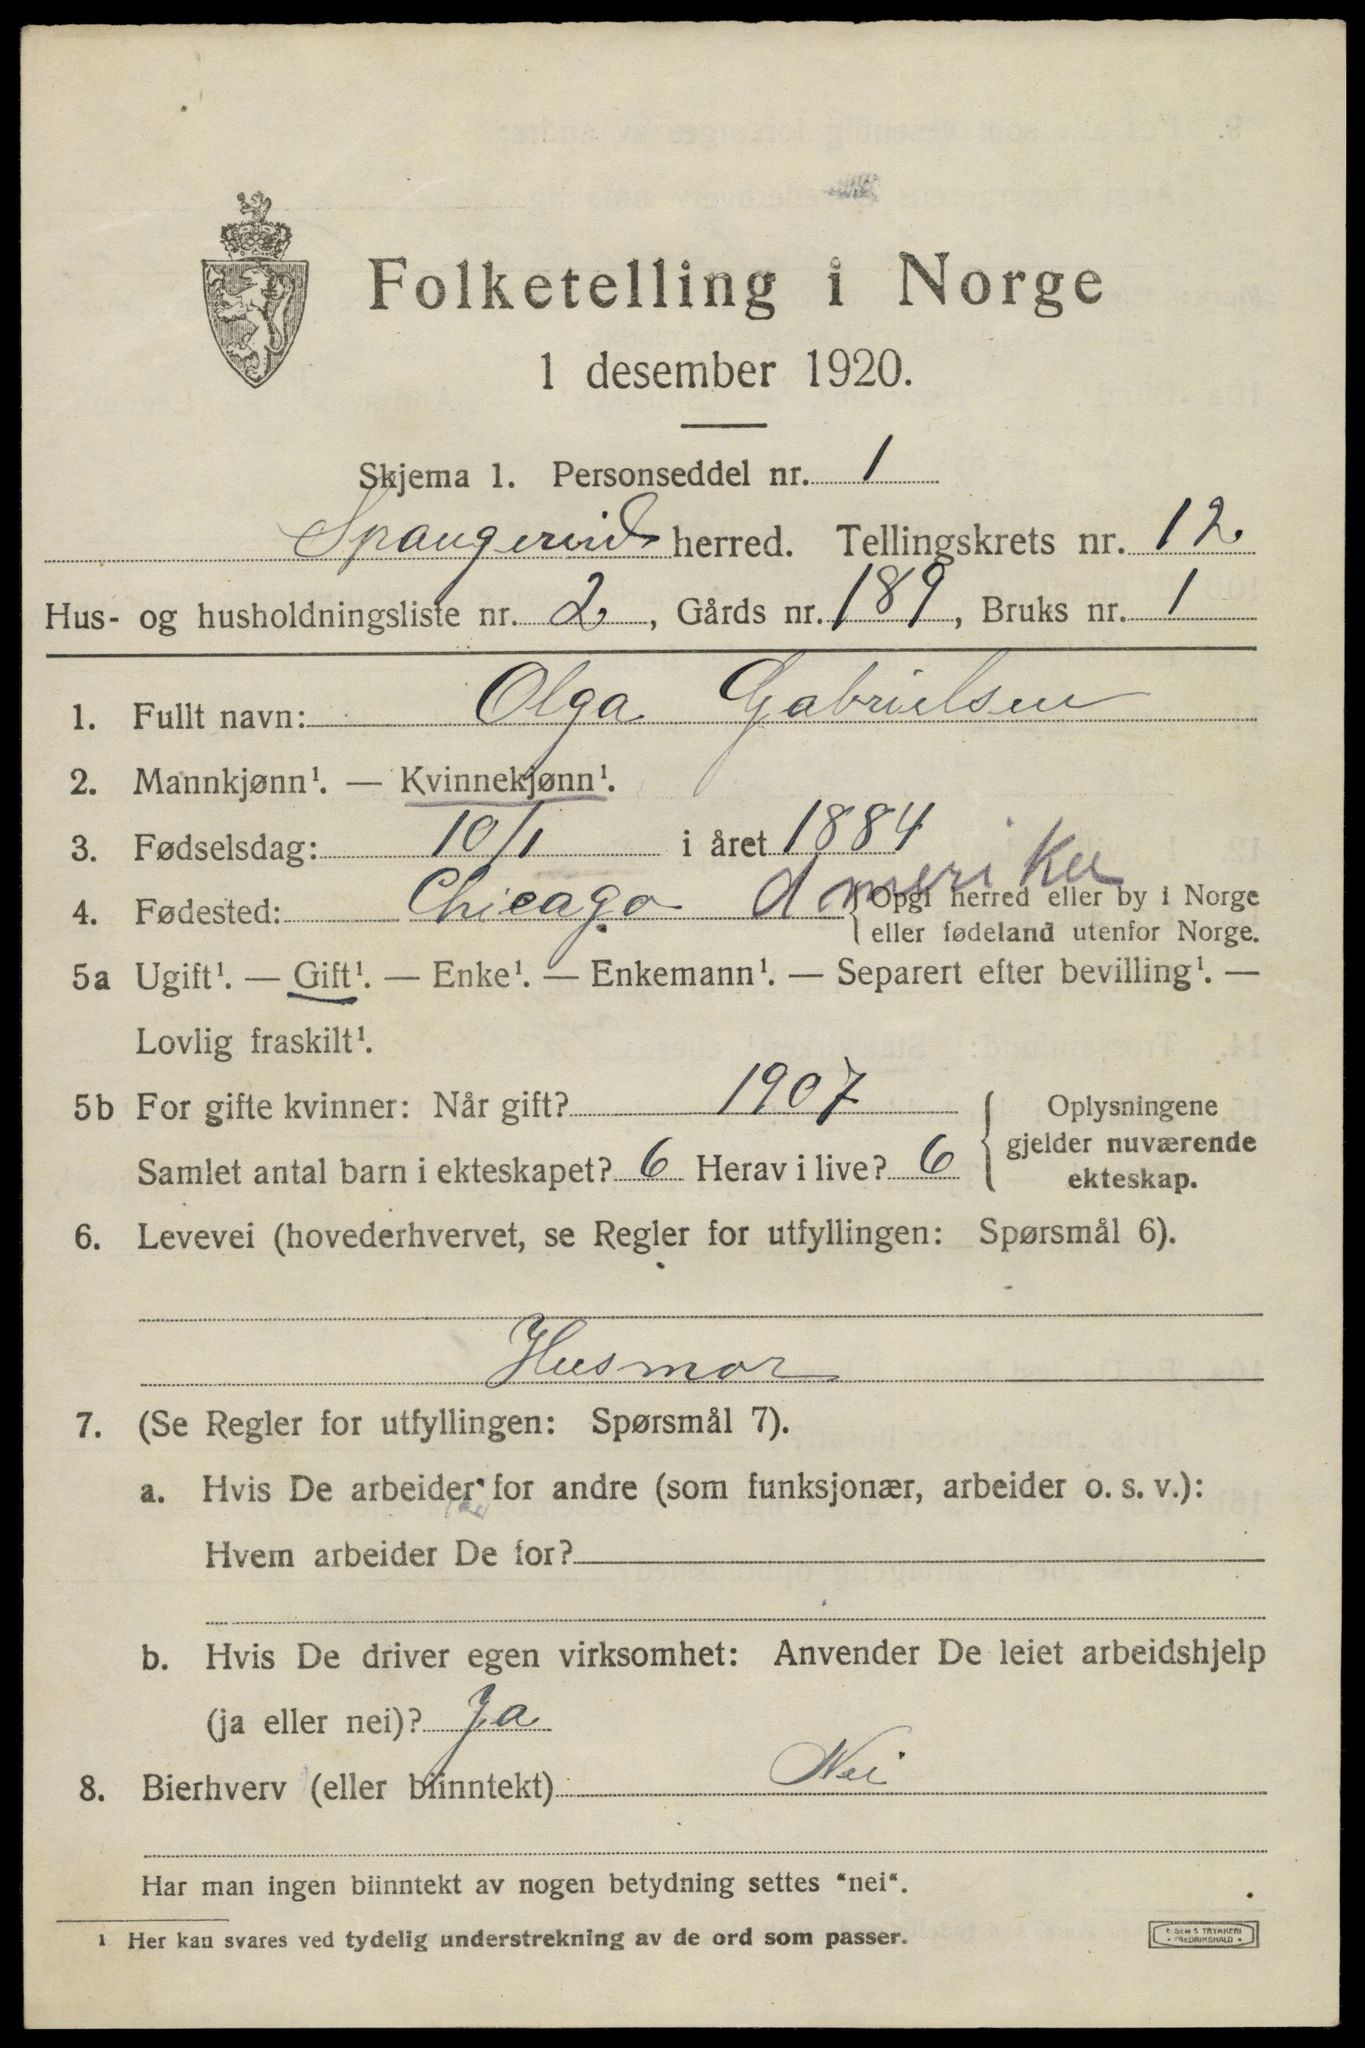 Folketelling i Norge
1 desember 1920.
Skjema 1. Personseddel nr. 1
Spangereid herred. Tellingskrets nr. 12
Hus- og husholdningsliste nr. 2, Gårds nr. 189, Bruks nr. 1
1. Fullt navn: Olga Gabrielsen
2. Mannkjønn¹. — Kvinnekjønn¹.
3. Fødselsdag: 10/1 i året 1884
4. Fødested: Chicago Amerika { Opgi herred eller by i Norge
eller fødeland utenfor Norge.
5a Ugift¹. — Gift¹. — Enke¹. — Enkemann¹. — Separert efter bevilling¹. —
Lovlig fraskilt¹.
5b For gifte kvinner: Når gift? 1907
Samlet antal barn i ekteskapet? 6 Herav i live? 6
{ Oplysningene
gjelder nuværende
ekteskap.
6. Levevei (hovederhvervet, se Regler for utfyllingen: Spørsmål 6).
Husmor
7. (Se Regler for utfyllingen: Spørsmål 7).
a. Hvis De arbeider for andre (som funksjonær, arbeider o. s. v.):
Hvem arbeider De for?
b. Hvis De driver egen virksomhet: Anvender De leiet arbeidshjelp
(ja eller nei)? Ja
8. Bierhverv (eller biinntekt) Nei
Har man ingen biinntekt av nogen betydning settes "nei".
¹ Her kan svares ved tydelig understrekning av de ord som passer.
TRYKKERI
FREDRIKSHALD